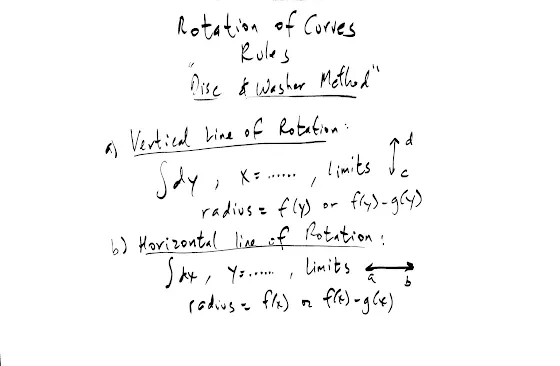 Rotation of Curves
Rules
"Disc & Washer Method"
a) Vertical Line of Rotation:
∫dy, x=......, limits ↕ d c
radius = f(y) or f(y)-g(y)
b) Horizontal line of Rotation:
∫dx, y=......, limits ↔ a b
radius = f(x) or f(x)-g(x)